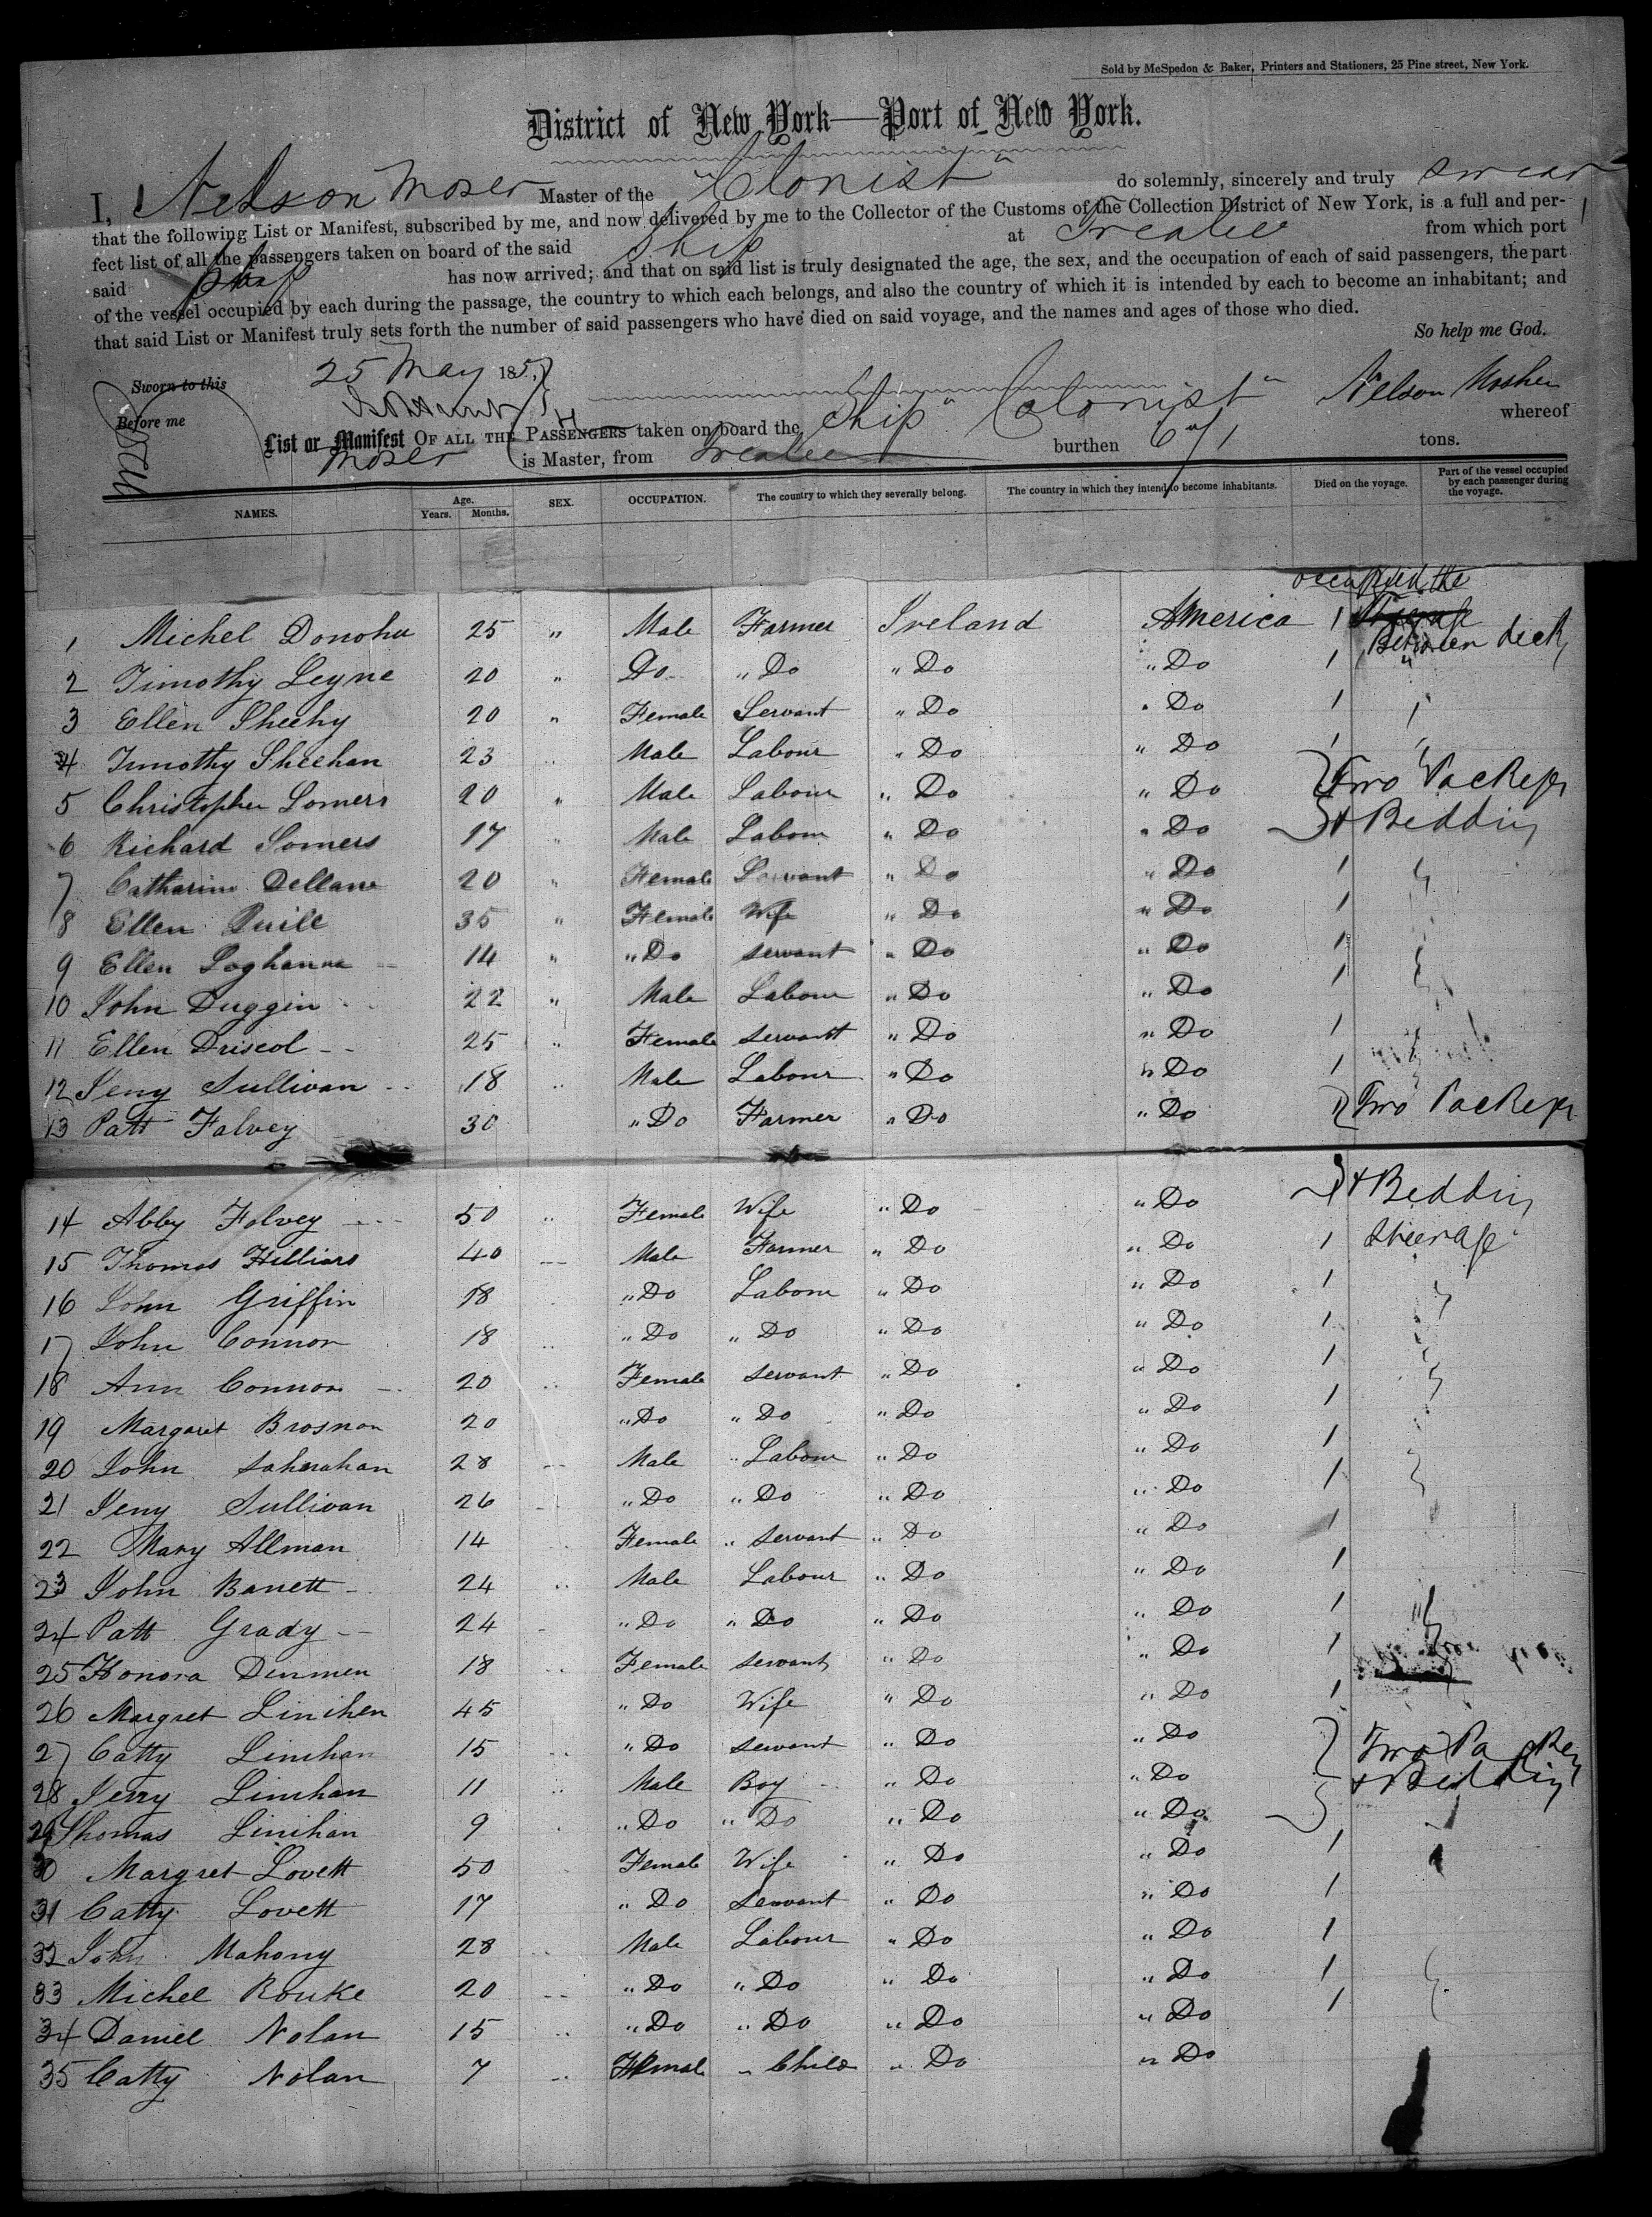 Sold by McSpedon & Baker, Printers and Stationers, 25 Pine street, New York.
District of New York—Port of New York.
I, Nelson Moser Master of the "Colonist" do solemnly, sincerely and truly swear
that the following List or Manifest, subscribed by me, and now delivered by me to the Collector of the Customs of the Collection District of New York, is a full and per-
fect list of all the passengers taken on board of the said Ship at Trealee from which port
said Ship has now arrived; and that on said list is truly designated the age, the sex, and the occupation of each of said passengers, the part
of the vessel occupied by each during the passage, the country to which each belongs, and also the country of which it is intended by each to become an inhabitant; and
that said List or Manifest truly sets forth the number of said passengers who have died on said voyage, and the names and ages of those who died.
So help me God.
Sworn to this 25 May 185
Nelson Mosher
Before me
List or Manifest OF ALL THE PASSENGERS taken on board the Ship "Colonist" whereof
Moser is Master, from Trealee burthen tons.
NAMES. Age. Years. Months. SEX. OCCUPATION. The country to which they severally belong. The country in which they intend to become inhabitants. Died on the voyage. Part of the vessel occupied by each passenger during the voyage.
occupied the
1 Michel Donohu 25 " Male Farmer Ireland America 1 Between deck
2 Timothy Leyne 20 " Do " Do " Do " Do 1 "
3 Ellen Sheehy 20 " Female Servant " Do " Do 1
4 Timothy Sheehan 23 " Male Labour " Do " Do 1
5 Christopher Somers 20 " Male Labour " Do " Do Two Packegs
6 Richard Somers 17 " Male Labour " Do " Do & Bedding
7 Catharine Dellane 20 " Female Servant " Do " Do 1
8 Ellen Quill 35 " Female Wife " Do " Do 1
9 Ellen Loghanne 14 " " Do servant " Do " Do 1
10 John Duggin 22 " Male Labour " Do " Do 1
11 Ellen Driscol 25 " Female servant " Do " Do 1
12 Jeny Sullivan 18 " Male Labour " Do " Do 1
13 Patt Falvey 30 " Do Farmer " Do " Do Two Packegs
14 Abby Falvey 50 " Female Wife " Do " Do & Bedding
15 Thomas Hilliars 40 Male Farmer " Do " Do 1 Steerage
16 John Griffin 18 " Do Labour " Do " Do 1
17 John Connor 18 " " Do " Do " Do " Do 1
18 Ann Connor 20 " Female servant " Do " Do 1
19 Margaret Brosnan 20 " Do " Do " Do " Do 1
20 John 28 Male " Labour " Do " Do 1
21 Jeny Sullivan 26 " Do " Do " Do " Do 1
22 Mary Allman 14 Female " servant " Do " Do 1
23 John Barrett 24 " Male Labour " Do " Do 1
24 Patt Grady 24 " Do " Do " Do " Do 1
25 Honora Dinmen 18 " Female servant " Do " Do 1
26 Margret Linihen 45 " Do Wife " Do " Do 1
27 Catty Linihan 15 " " Do servant " Do " Do Two Packegs
28 Jerry Linihan 11 " Male Boy " Do " Do & Bedding
29 Thomas Linihan 9 " Do " Do " Do " Do
30 Margret Lovett 50 Female Wife " Do " Do 1
31 Catty Lovett 17 " Do servant " Do " Do 1
32 John Mahony 28 Male Labour " Do " Do 1
33 Michel Rourke 20 " Do " Do " Do " Do 1
34 Daniel Nolan 15 " " Do " Do " Do " Do 1
35 Catty Nolan 7 " Female " Child " Do " Do